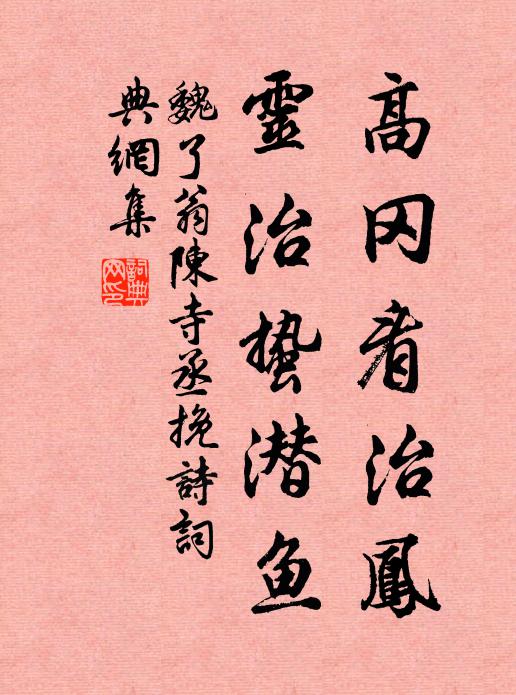 高冈看治鳳
靈治蛰潜鱼
魏了翁陳寺丞挽詩詞
典網集
詞典
网印